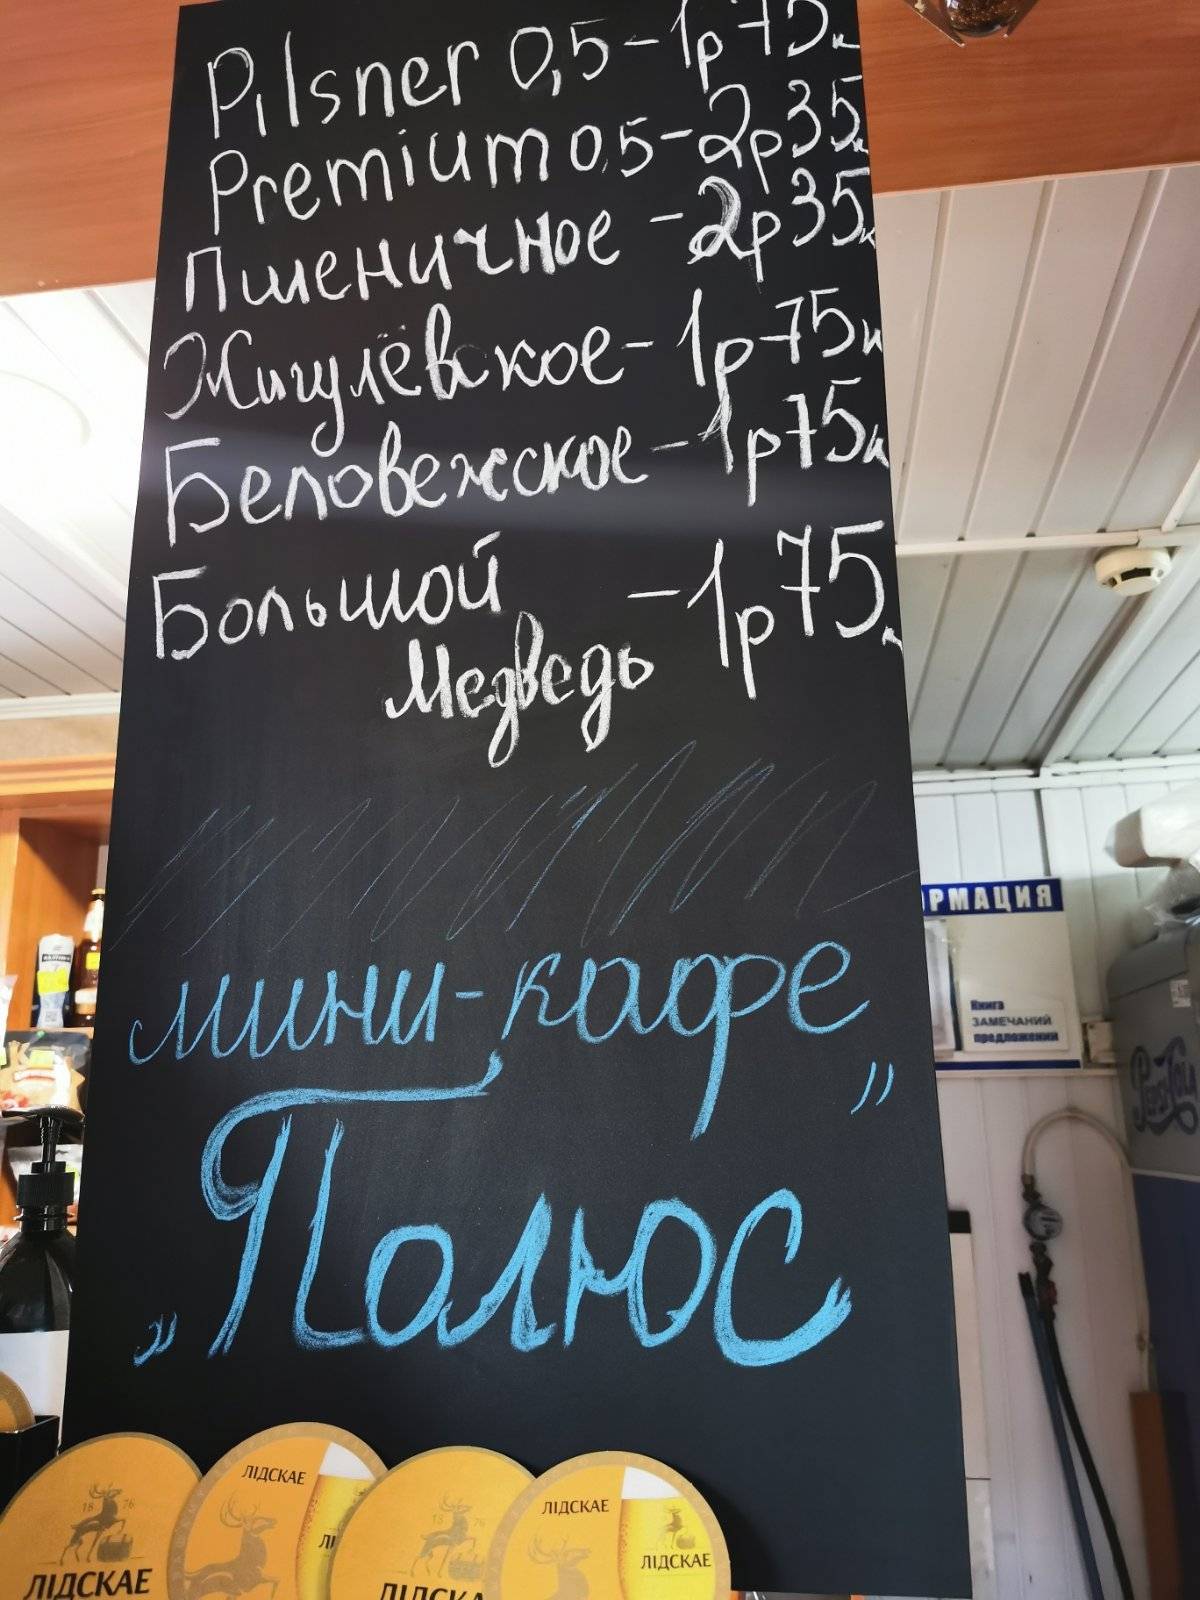 Pilsner 0,5 – 1р 75к
Premium 0,5 – 2р 35к
Пшеничное – 2р 35к
Жигулёвское – 1р 75к
Беловежское – 1р 75к
Большой
Медведь – 1р 75к
мини-кафе
„Полюс”
РМАЦИЯ
Книга
ЗАМЕЧАНИЙ
предложений
Pepsi Cola
ЛІДСКАЕ
ЛІДСКАЕ
ЛІДСКАЕ
18 76
18 76
ЛІДСКАЕ
ЛІДСКАЕ